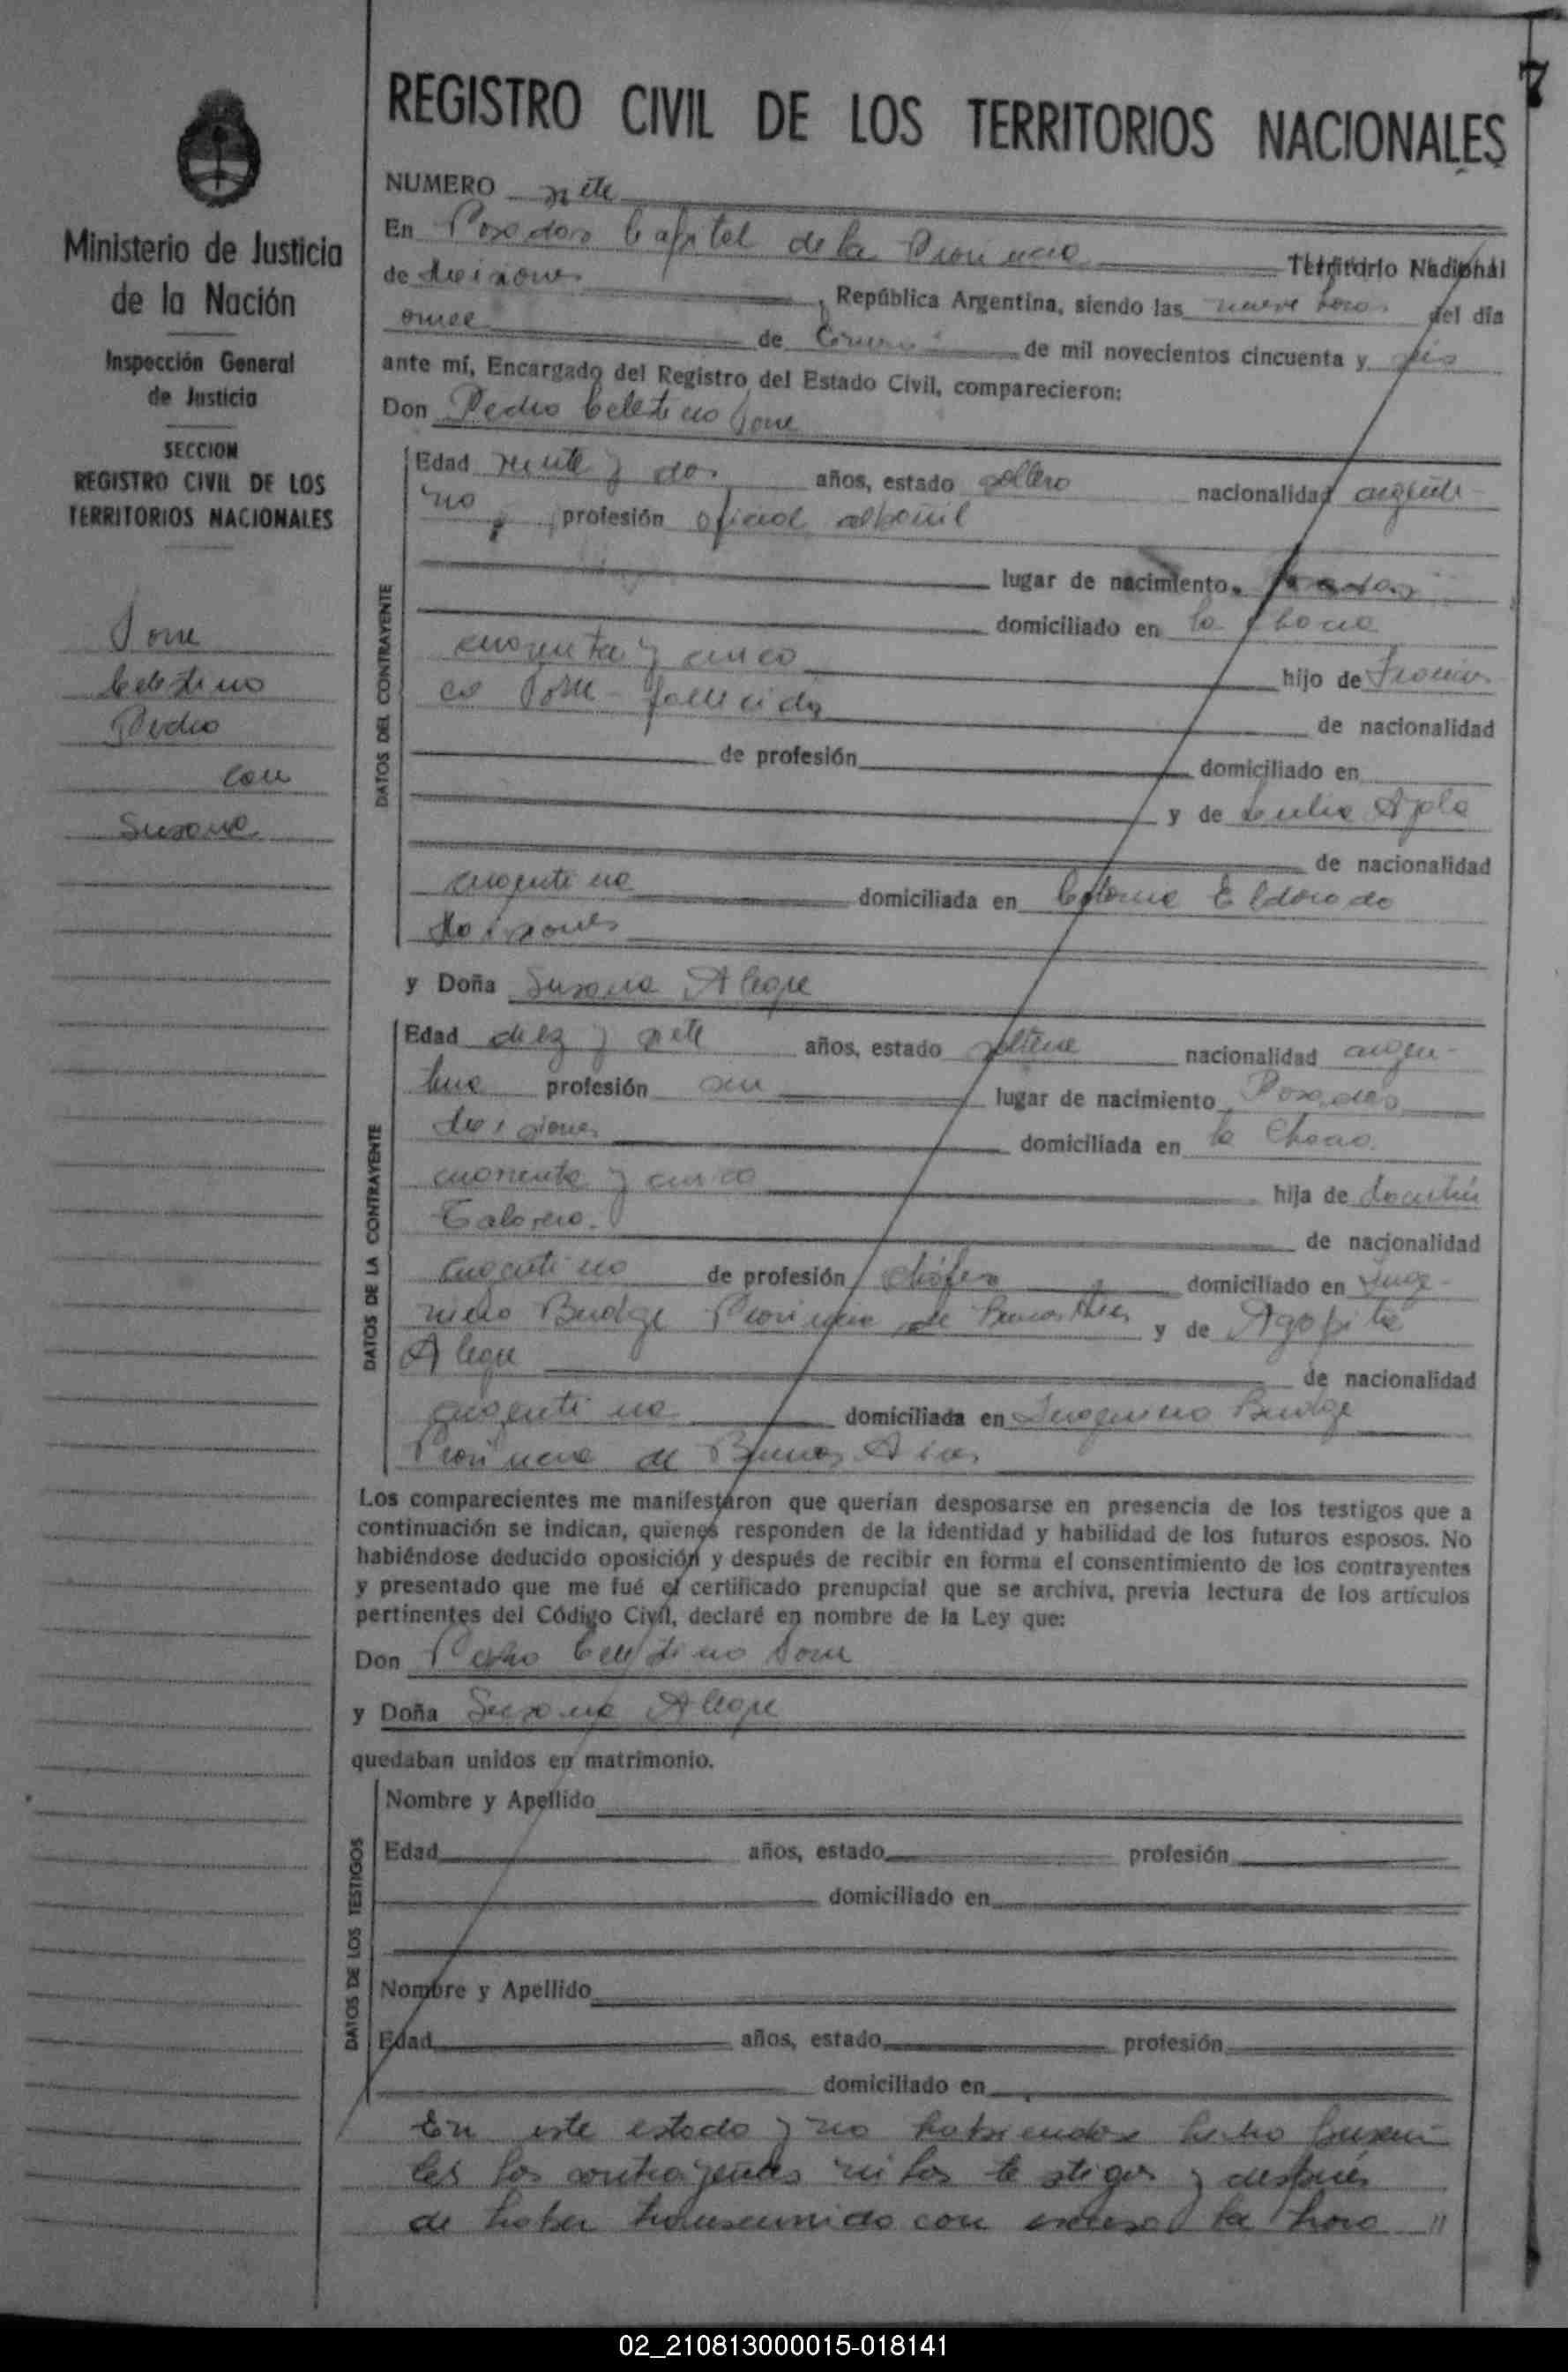 7
REGISTRO CIVIL DE LOS TERRITORIOS NACIONALES
Ministerio de Justicia
de la Nación
Inspección General
de Justicia
SECCION
REGISTRO CIVIL DE LOS
TERRITORIOS NACIONALES
Celestino
Pedro
con
Susana
NUMERO siete
En Posadas Capital de la Provincia Territorio Nacional
de Misiones, República Argentina, siendo las nueve horas del día
once de Enero de mil novecientos cincuenta y seis
ante mí, Encargado del Registro del Estado Civil, comparecieron:
Don Pedro Celestino
Edad veinte y dos años, estado soltero nacionalidad argenti-
no, profesión oficial albañil
lugar de nacimiento. Posadas
domiciliado en la Chacra
cuarenta y cinco hijo de Francis
co fallecido de nacionalidad
de profesión domiciliado en
y de Ayala
de nacionalidad
argentina domiciliada en Colonia Eldorado
Misiones
y Doña Susana Alegre
Edad diez y siete años, estado soltera nacionalidad argen-
tina profesión sin lugar de nacimiento Posadas
Misiones domiciliada en la Chacra
cuarenta y cinco hija de
de nacionalidad
argentino de profesión chófer domiciliado en Inge-
niero Budge Provincia de Buenos Aires y de Agapita
Alegre de nacionalidad
argentina domiciliada en Ingeniero Budge
Provincia de Buenos Aires
Los comparecientes me manifestaron que querían desposarse en presencia de los testigos que a
continuación se indican, quienes responden de la identidad y habilidad de los futuros esposos. No
habiéndose deducido oposición y después de recibir en forma el consentimiento de los contrayentes
y presentado que me fué el certificado prenupcial que se archiva, previa lectura de los artículos
pertinentes del Código Civil, declaré en nombre de la Ley que:
Don Pedro Celestino
y Doña Susana Alegre
quedaban unidos en matrimonio.
Nombre y Apellido
Edad años, estado profesión
domiciliado en
Nombre y Apellido
Edad años, estado profesión
domiciliado en
DATOS DEL CONTRAYENTE
DATOS DE LA CONTRAYENTE
DATOS DE LOS TESTIGOS
En este estado y no habiendose hecho presen
tes los contrayentes ni los testigos y después
de haber transcurrido con exceso la hora "
02_210813000015-018141